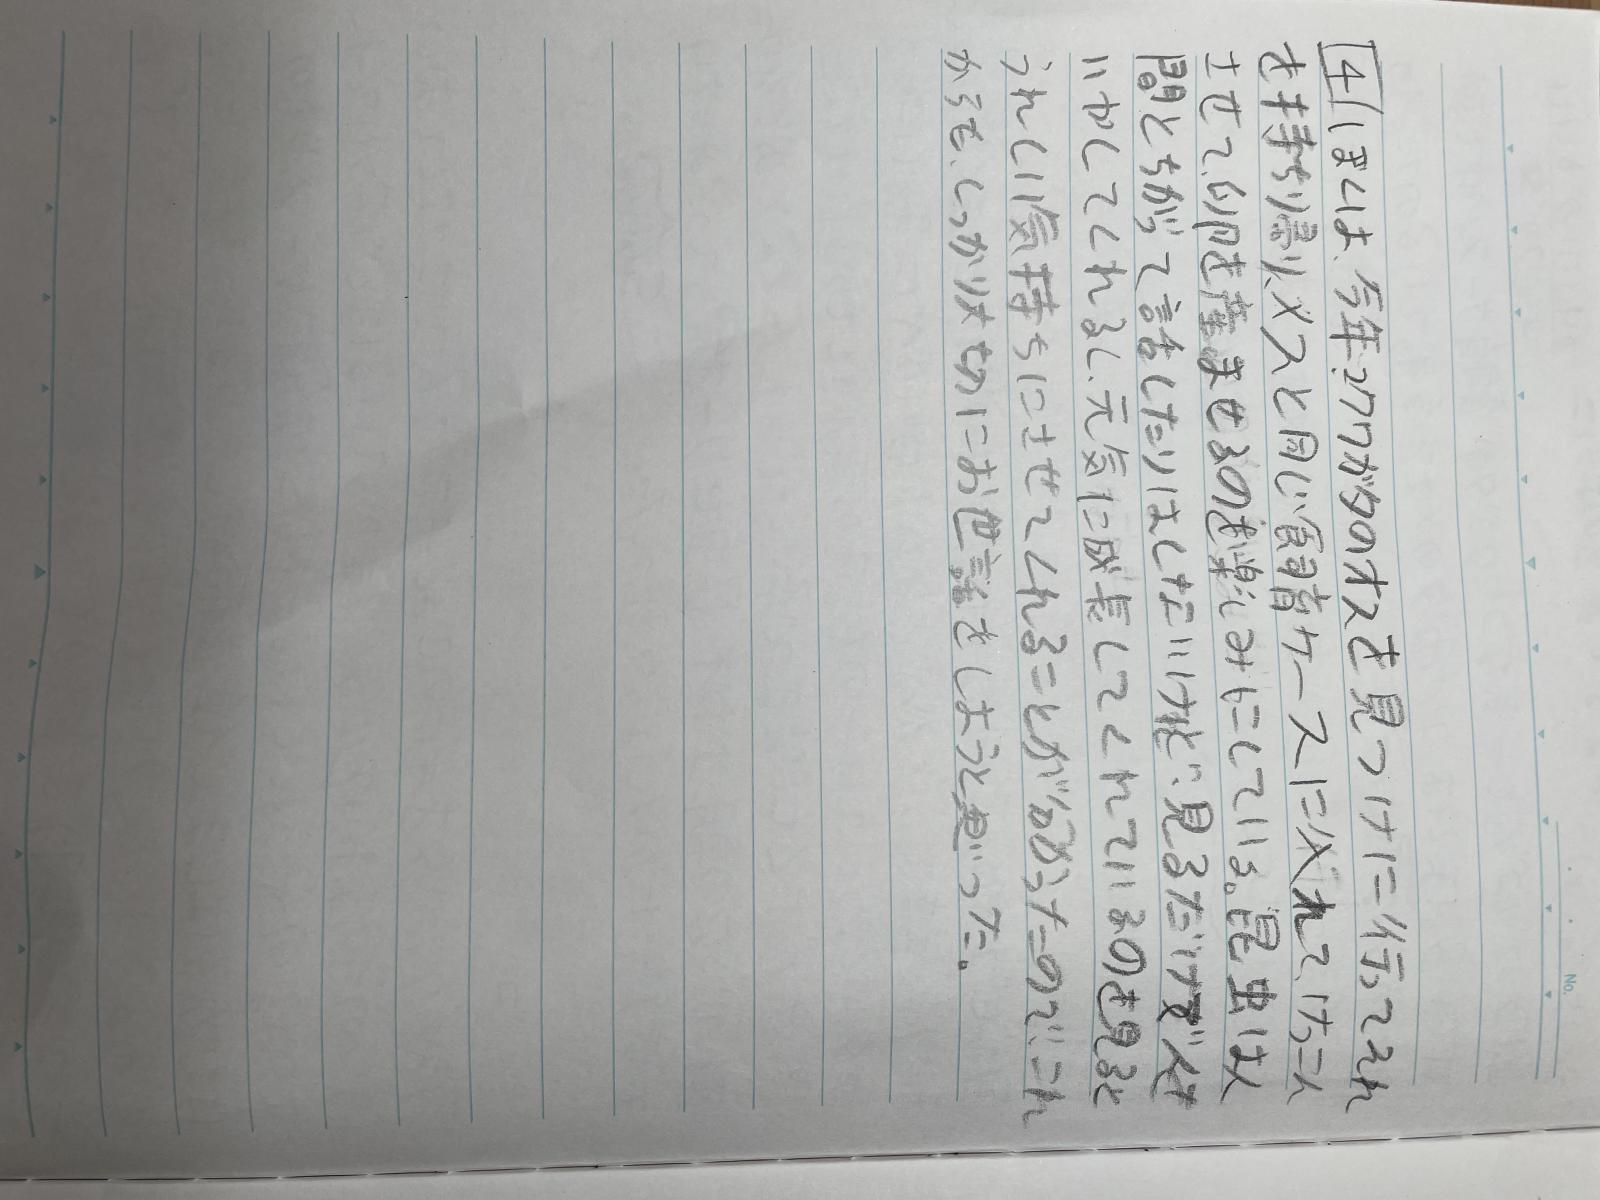 4 ぼくは、今年コクワガタのオスを見つけに行ってそれ
を持ち帰り、メスと同じ飼育ケースに入れて、けっこん
させて、卵を産ませるのを楽しみにしている。昆虫は人
間とちがって話したりはしないけれど、見るだけで人を
いやしてくれるし、元気に成長してくれているのを見ると
うれしい気持ちにさせてくれることが分かったので、これ
からも、しっかり大切にお世話をしようと思った。
No.